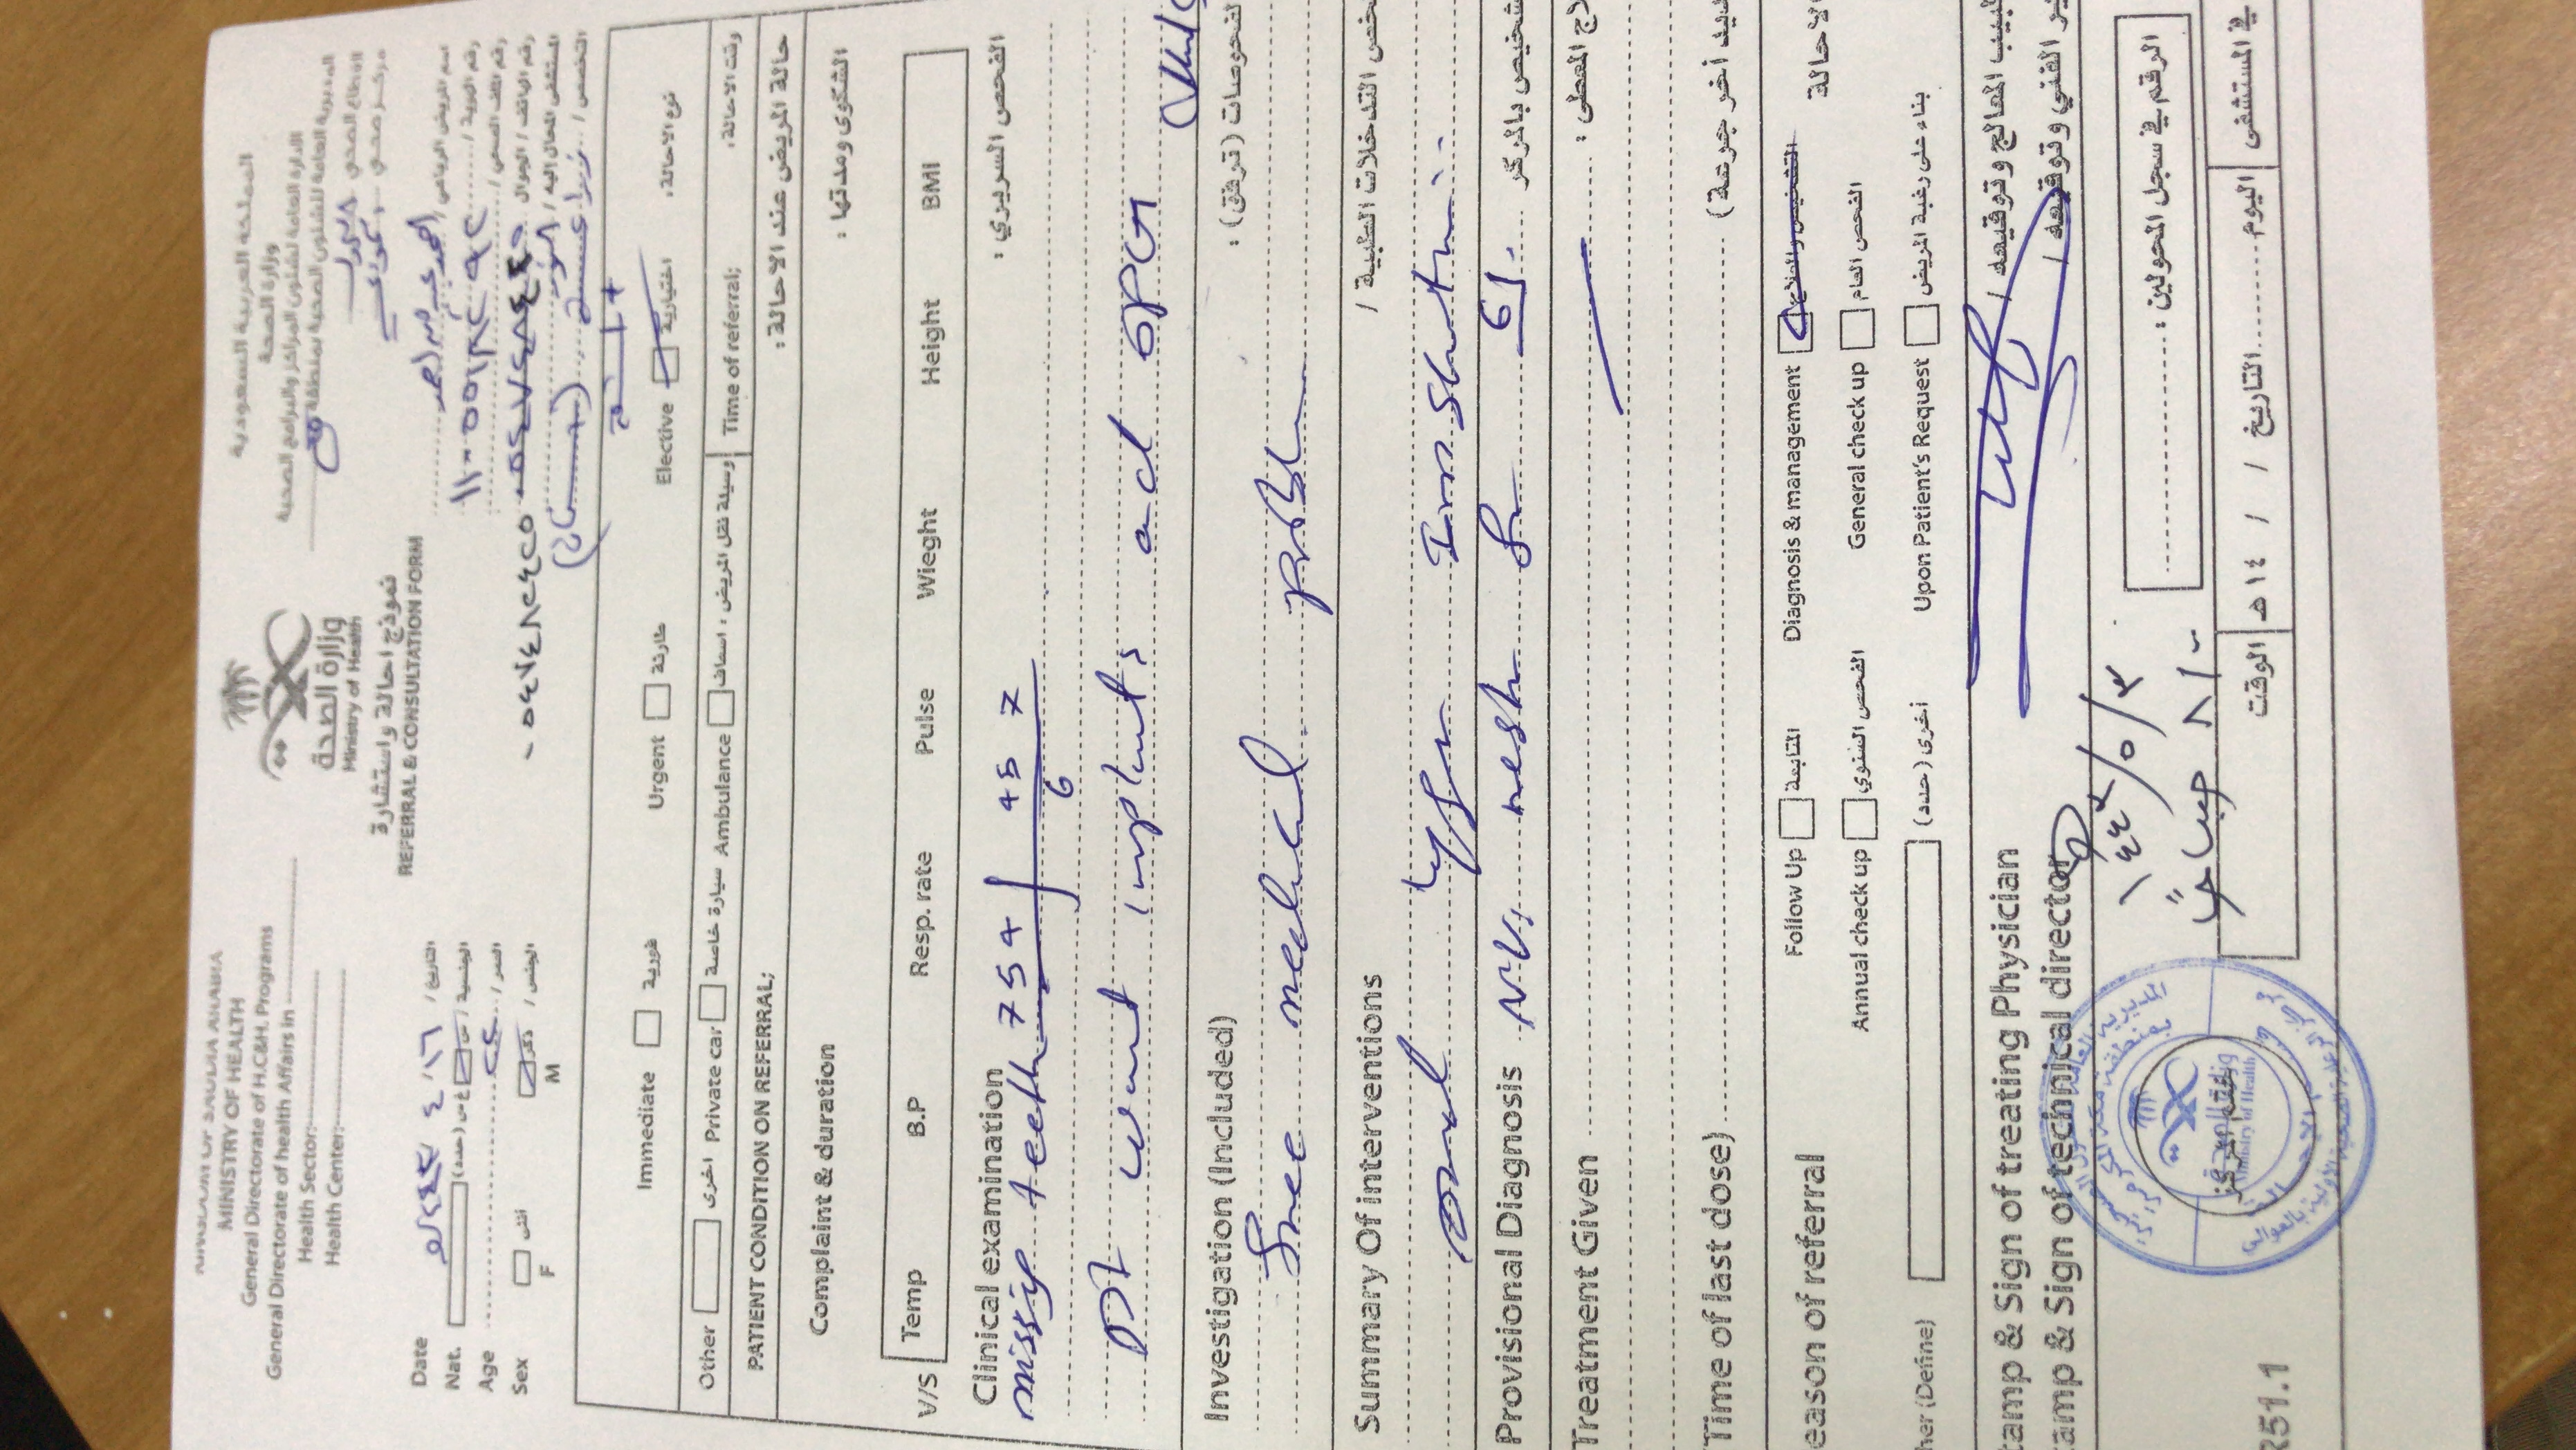 KINGDOM OF SAUDIA ARABIA
MINISTRY OF HEALTH
General Directorate of H.C&H. Programs
General Directorate of health Affairs in
Health Sector:
Health Center:
وزارة الصحة
Ministry of Health
نموذج احالة واستشارة
REFERRAL & CONSULTATION FORM
المملكة العربية السعودية
وزارة الصحة
الادارة العامة لشئون المراكز والبرامج الصحية
المديرية العامة للشئون الصحية بمنطقة
القطاع الصحي
مركز صحي
اسم المريض الرباعي /
رقم الهوية /
رقم الملف الصحي /
رقم الهاتف / الجوال ٠٥٤٧٤٨٢٤٢٥
المستشفى المحال إليه /
التخصص / زراعة
Date التاريخ / ١٦ / ٤ /
Nat. الجنسية / س غ س (حدد)
Age العمر /
Sex الجنس / ذكر أنثى
F M
Immediate فورية Urgent طارئة Elective اختيارية نوع الاحالة.
Other اخرى Private car سيارة خاصة Ambulance وسيلة نقل المريض : اسعاف Time of referral; وقت الاحالة.
PATIENT CONDITION ON REFERRAL; حالة المريض عند الاحالة :
Complaint & duration الشكوى ومدتها :
V/S Temp B.P Resp. rate Pulse Wieght Height BMI
Clinical examination الفحص السريري :
missig teeth 754 | 45 7
6
pt want implants and OPG
Investigation (Included) لفحوصات (ترفق) :
free medical probl
Summary Of interventions خص التدخلات الطبية /
oral
Provisional Diagnosis شخيص بالمركز
N.V. 6
Treatment Given لاج المعطى :
Time of last dose) ديد أخر جرعة)
eason of referral Follow Up المتابعة Diagnosis & management التشخيص والعلاج الاحالة
Annual check up الفحص السنوي General check up الفحص العام
her (Define) أخرى (حدد) Upon Patient's Request بناء على رغبة المريض
tamp & Sign of treating Physician لبيب المعالج وتوقيعه /
tamp & Sign of technical director ير الفني وتوقيعه /
١٤٤٣/٥/٣
٨/٠ صباحاً
الرقم في سجل المحولين :
في المستشفى اليوم التاريخ / / ١٤هـ الوقت
ختم المركز
المديرية العامة للشئون الصحية
بمنطقة مكة المكرمة
وزارة الصحة
Ministry of Health
مركز الرعاية الصحية الأولية بالعوالي
R51.1